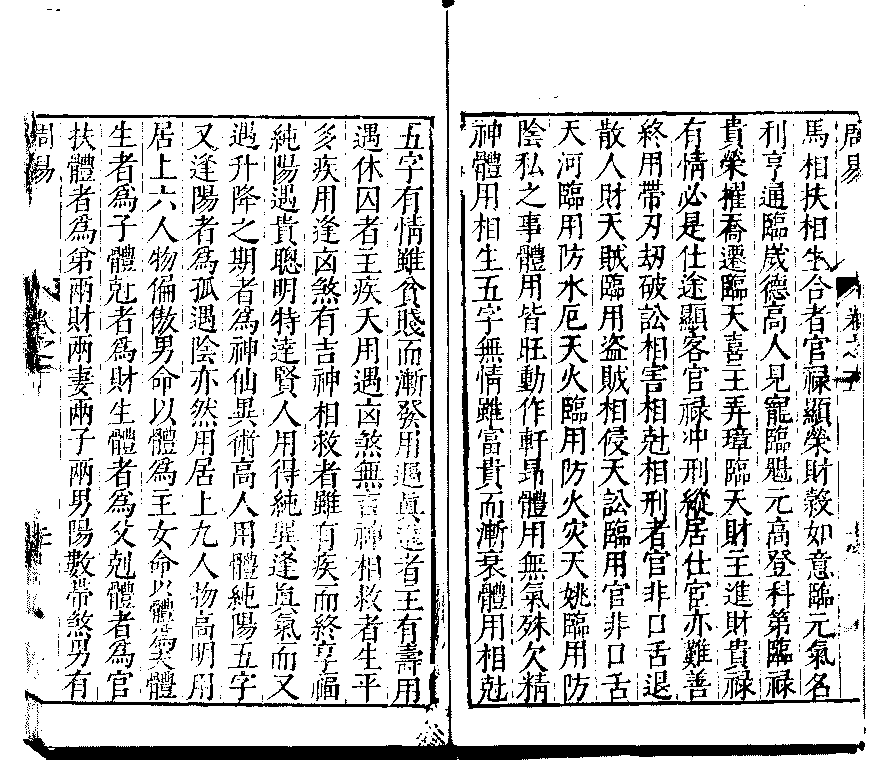 周易
馬相扶相生合者官祿顯榮財穀如意臨元氣名
利亨通臨歲德高人見寵臨魁元高登科第臨祿
貴榮擢喬遷臨天喜主弄璋臨天財主進財貴祿
有情必是仕途顯客官祿冲刑縱居仕宦亦難善
終用帶刃刼破訟相害相尅相刑者官非口舌退
散人財天賊臨用盗賊相侵天訟臨用官非口舌
天河臨用防水厄天火臨用防火灾天姚臨用防
陰私之事體用皆旺動作軒昻體用無氣殊欠精
神體用相生五字無情雖富貴而漸衰體用相尅
五字有情雖貧賤而漸發用遇眞進者王有壽用
遇休囚者王疾夭用遇凶煞無吉神相救者生平
多疾用逢凶煞有吉神相救者雖有疾而終享福
純陽遇貴聰明特達賢人用得純巽逢眞氣而又
遇升降之期者為神仙異術高人用體純陽五字
又逢陽者為孤遇陰亦然用居上九人物高明用
居上六人物偏傲男命以體為王女命以體為夫體
生者為子體尅者為財生體者為父尅體者為官
扶體者為弟兩財兩妻兩子兩男陽數帶煞男有
周易